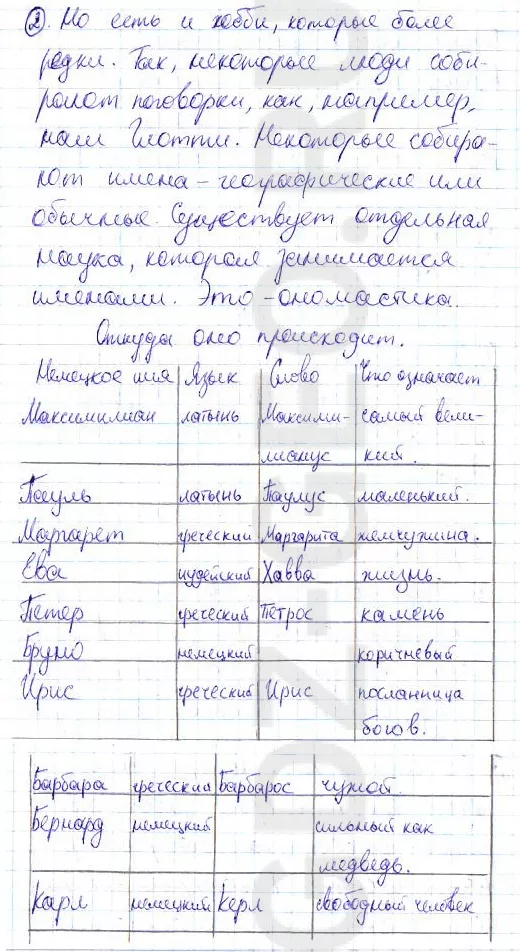 2. Но есть и хобби, которые более
редки. Так, некоторые люди соби-
рают поговорки, как, например,
наш Глотти. Некоторые собира-
ют имена - географические или
обычные. Существует отдельная
наука, которая занимается
именами. Это - ономастика.
Откуда оно происходит.
Немецкое имя Язык Слово Что означает
Максимилиан латынь Максими- самый вели-
лианус кий.
Пауль латынь Паулус маленький.
Маргарет греческий Маргарита жемчужина.
Ева иудейский Хавва жизнь.
Петер греческий Петрос камень
Бруно немецкий коричневый
Ирис греческий Ирис посланница
богов.
Барбара греческий Барбарос чужой.
Бернард немецкий сильный как
медведь.
Карл немецкий Керл свободный человек
GDZ-GEO.RU